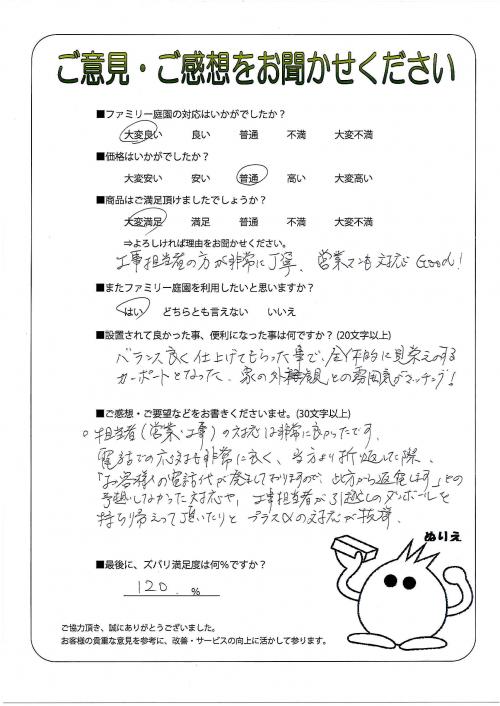 ご意見・ご感想をお聞かせください
■ファミリー庭園の対応はいかがでしたか？
大変良い 良い 普通 不満 大変不満
■価格はいかがでしたか？
大変安い 安い 普通 高い 大変高い
■商品はご満足頂けましたでしょうか？
大変満足 満足 普通 不満 大変不満
⇒よろしければ理由をお聞かせください。
工事担当者の方が非常に丁寧、営業マンも対応Good!
■またファミリー庭園を利用したいと思いますか？
はい どちらとも言えない いいえ
■設置されて良かった事、便利になった事は何ですか？(20文字以上)
バランス良く仕上げてもらった事で、全体的に見栄えのする
カーポートとなった、家の外観との雰囲気がマッチング!
■ご感想・ご要望などをお書きくださいませ。(30文字以上)
○担当者(営業・工事)の対応は非常に良かったです。
電話での応対も非常に良く、当方より折返した際、
「お客様の電話代が発生しておりますので、此方から返電します」との
予想しなかった対応や、工事担当者が引越しのダンボールを
持ち帰って頂いたりとプラスαの対応が抜群。
ぬりえ
■最後に、ズバリ満足度は何％ですか？
120.％
ご協力頂き、誠にありがとうございました。
お客様の貴重な意見を参考に、改善・サービスの向上に活かして参ります。